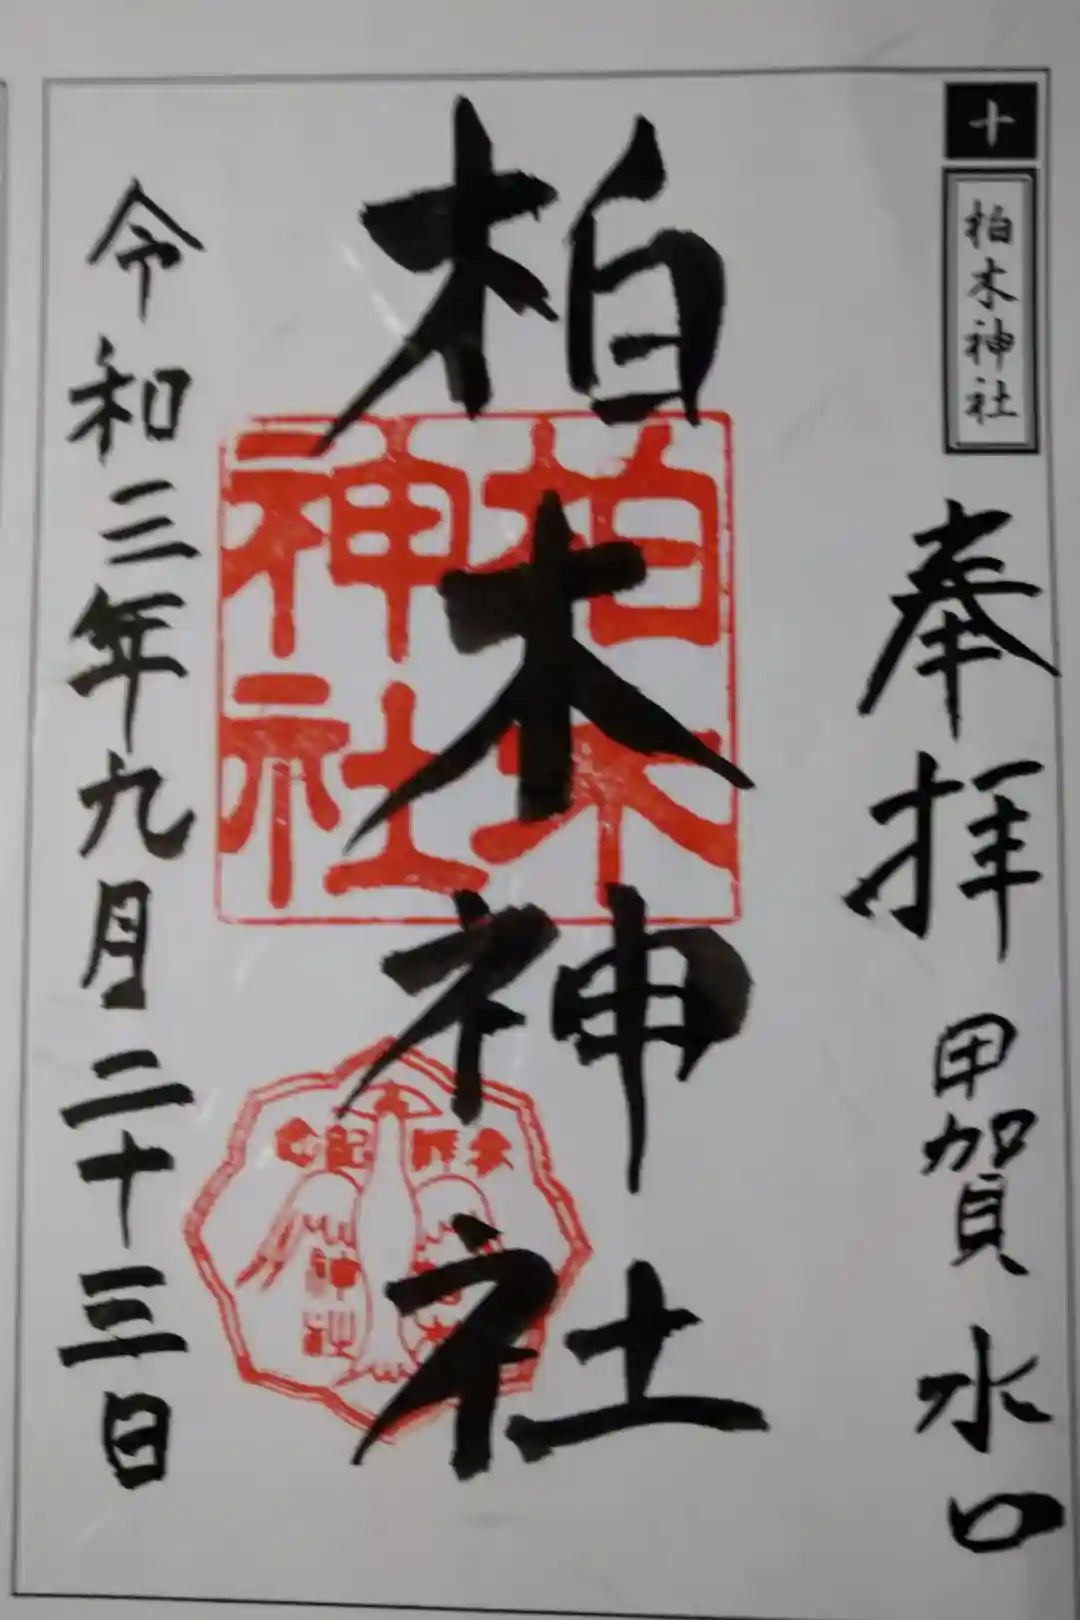 十
柏木神社
奉拝 甲賀 水口
柏木神社
柏木
神社
神社
令和三年九月二十三日